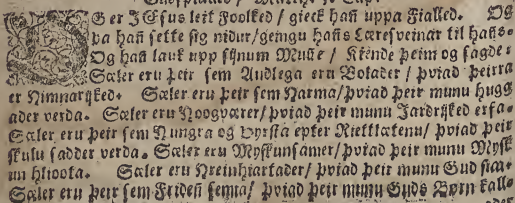 OG er JEsus leit Foolked / gieck hañ uppa Fialled. Og
þa hañ sette sig nidur / geingu hañs Læresveinar til hañs.
Og hañ lauk upp sÿnum Muñe / Kiende þeim og sagde:
Sæler eru þeir sem Andlega eru Volader / þviad þeirra
er Himnarÿked. Sæler eru þeir sem Harma / þviad þeir munu Hugg
ader verda. Sæler eru Hoogværer / þviad þeir munu Jardrÿked erfa.
Sæler eru þeir sem Hungra og þyrsta epter Riettlætenu / þviad þeir
skulu sadder verda. Sæler eru Myskunsamer / þviad þeir munu Mysk
un hlioota. Sæler eru Hreinhiartader / þviad þeir munu Gud siaa.
Sæler eru þeir sem Frideñ semia / þviad þeir munu Guds Børn kall